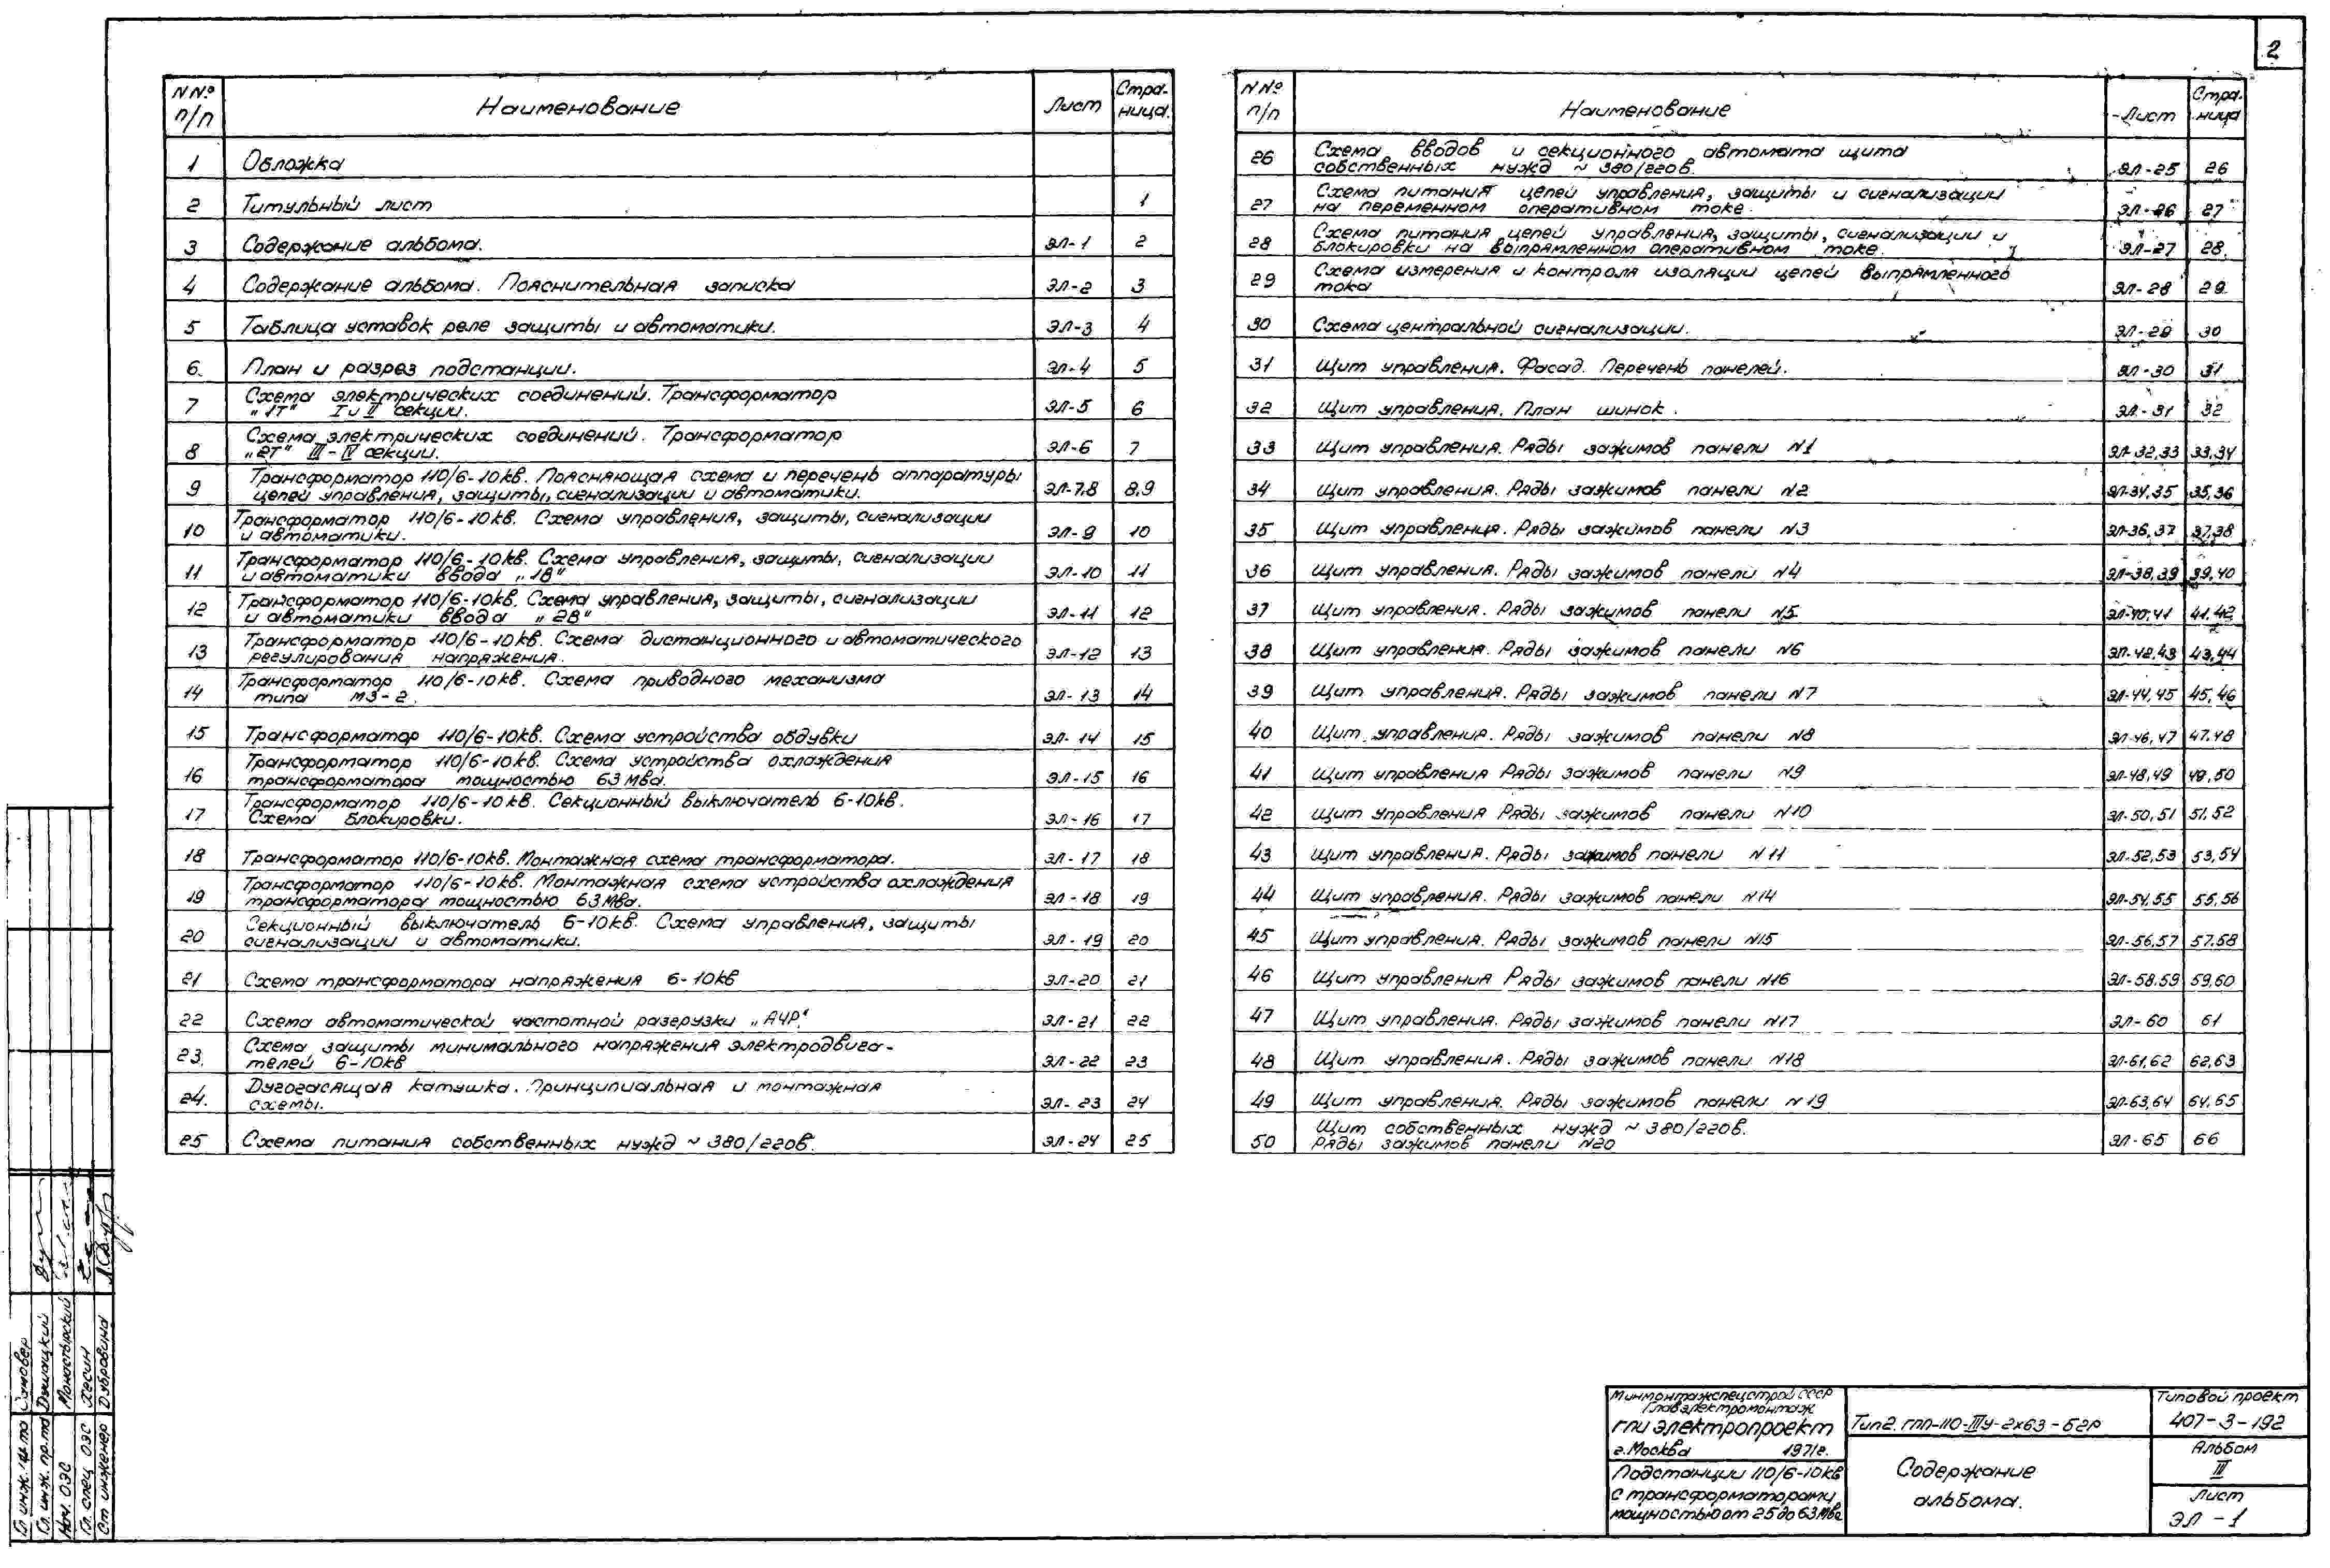 2
N Nº п/п Наименование Лист Стра-ница.
1 Обложка
2 Титульный лист 1
3 Содержание альбома. ЭЛ-1 2
4 Содержание альбома. Пояснительная записка ЭЛ-2 3
5 Таблица уставок реле защиты и автоматики. ЭЛ-3 4
6. План и разрез подстанции. ЭЛ-4 5
7 Схема электрических соединений. Трансформатор
„1Т" I и II секции. ЭЛ-5 6
8 Схема электрических соединений. Трансформатор
„2Т" III-IV секции. ЭЛ-6 7
9 Трансформатор 110/6-10кв. Поясняющая схема и перечень аппаратуры
цепей управления, защиты, сигнализации и автоматики. ЭЛ-7,8 8,9
10 Трансформатор 110/6-10кв. Схема управления, защиты, сигнализации
и автоматики. ЭЛ-9 10
11 Трансформатор 110/6-10кв. Схема управления, защиты, сигнализации
и автоматики ввода „1В" ЭЛ-10 11
12 Трансформатор 110/6-10кв. Схема управления, защиты, сигнализации
и автоматики ввода „2В" ЭЛ-11 12
13 Трансформатор 110/6-10кв. Схема дистанционного и автоматического
регулирования напряжения. ЭЛ-12 13
14 Трансформатор 110/6-10кв. Схема приводного механизма
типа МЗ-2. ЭЛ-13 14
15 Трансформатор 110/6-10кв. Схема устройства обдувки ЭЛ-14 15
16 Трансформатор 110/6-10кв. Схема устройства охлаждения
трансформатора мощностью 63 Мва. ЭЛ-15 16
17 Трансформатор 110/6-10кв. Секционный выключатель 6-10кв.
Схема блокировки. ЭЛ-16 17
18 Трансформатор 110/6-10кв. Монтажная схема трансформатора. ЭЛ-17 18
19 Трансформатор 110/6-10кв. Монтажная схема устройства охлаждения
трансформатора мощностью 63 Мва. ЭЛ-18 19
20 Секционный выключатель 6-10кв. Схема управления, защиты
сигнализации и автоматики. ЭЛ-19 20
21 Схема трансформатора напряжения 6-10кв ЭЛ-20 21
22 Схема автоматической частотной разгрузки „АЧР." ЭЛ-21 22
23. Схема защиты минимального напряжения электродвига-
телей 6-10кв ЭЛ-22 23
24. Дугогасящая катушка. Принципиальная и монтажная
схемы. ЭЛ-23 24
25 Схема питания собственных нужд ~ 380/220в. ЭЛ-24 25
N Nº п/п Наименование Лист Стра-ница
26 Схема вводов и секционного автомата щита
собственных нужд ~ 380/220в. ЭЛ-25 26
27 Схема питания цепей управления, защиты и сигнализации
на переменном оперативном токе. ЭЛ-26 27
28 Схема питания цепей управления, защиты, сигнализации и
блокировки на выпрямленном оперативном токе. ЭЛ-27 28.
29 Схема измерения и контроля изоляции цепей выпрямленного
тока ЭЛ-28 29
30 Схема центральной сигнализации. ЭЛ-29 30
31 Щит управления. Фасад. Перечень панелей. ЭЛ-30 31
32 Щит управления. План шинок. ЭЛ-31 32
33 Щит управления. Ряды зажимов панели N1 ЭЛ-32,33 33,34
34 Щит управления. Ряды зажимов панели N2 ЭЛ-34,35 35,36
35 Щит управления. Ряды зажимов панели N3 ЭЛ-36,37 37,38
36 Щит управления. Ряды зажимов панели N4 ЭЛ-38,39 39,40
37 Щит управления. Ряды зажимов панели N5 ЭЛ-40,41 41,42
38 Щит управления. Ряды зажимов панели N6 ЭЛ-42,43 43,44
39 Щит управления. Ряды зажимов панели N7 ЭЛ-44,45 45,46
40 Щит управления. Ряды зажимов панели N8 ЭЛ-46,47 47,48
41 Щит управления Ряды зажимов панели N9 ЭЛ-48,49 49,50
42 Щит управления Ряды зажимов панели N10 ЭЛ-50,51 51,52
43 Щит управления. Ряды зажимов панели N11 ЭЛ-52,53 53,54
44 Щит управления. Ряды зажимов панели N14 ЭЛ-54,55 55,56
45 Щит управления. Ряды зажимов панели N15 ЭЛ-56,57 57,58
46 Щит управления Ряды зажимов панели N16 ЭЛ-58,59 59,60
47 Щит управления. Ряды зажимов панели N17 ЭЛ-60 61
48 Щит управления. Ряды зажимов панели N18 ЭЛ-61,62 62,63
49 Щит управления. Ряды зажимов панели N19 ЭЛ-63,64 64,65
50 Щит собственных нужд ~ 380/220в.
Ряды зажимов панели N20 ЭЛ-65 66
Гл инж. ин-та
Гл. инж. пр-та
Нач. ОЭС Монастырский
Гл. спец ОЭС Хесин
Ст инженер Дубровина
Минмонтажспецстрой СССР
Главэлектромонтаж
ГПИ Электропроект
г. Москва 1971г.
Подстанции 110/6-10кв
с трансформаторами
мощностью от 25 до 63 Мва
Тип 2. ГПП-110-IIIУ-2х63-Б2Р
Содержание
альбома.
Типовой проект
407-3-192
Альбом
III
Лист
ЭЛ-1